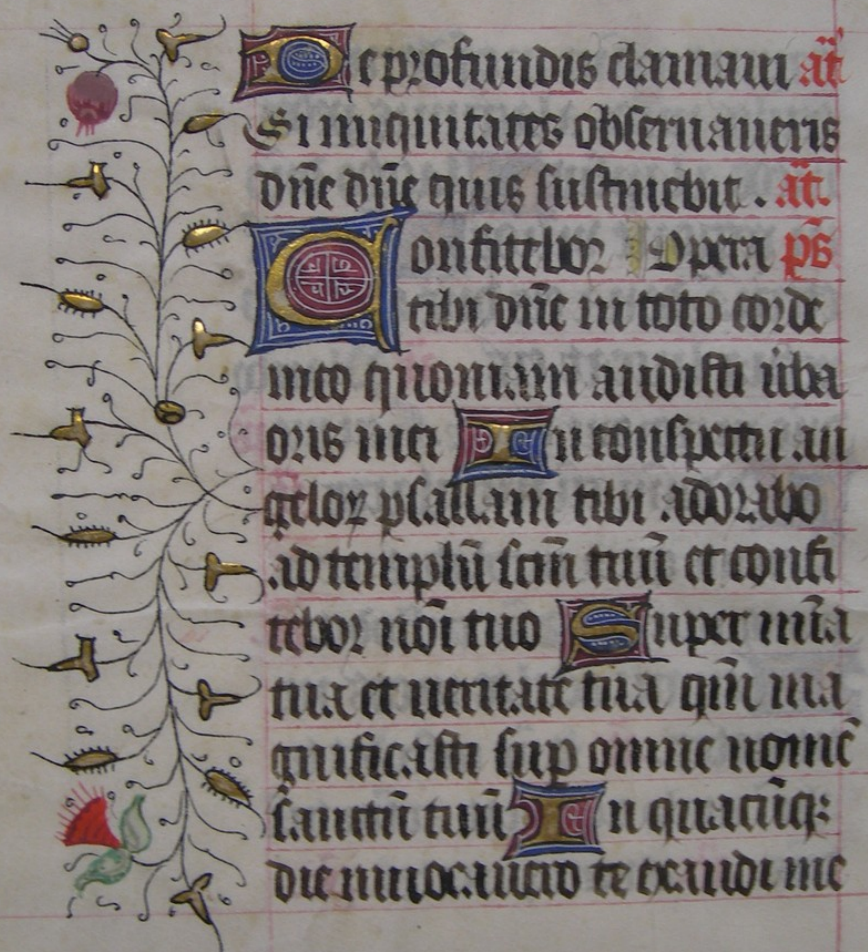 De profundis clamaui añ
Si iniquitates obseruaueris
dñe dñe quis sustinebit . añ.
Confitebor Opera ps̄
tibi dñe in toto corde
meo quoniam audisti ūba
oris mei In conspectu an
geloꝝ psallam tibi adorabo
ad templū scm̄ tuū et confi
tebor noī tuo Super mīa
tua et ueritate tua qm̄ ma
gnificasti sup omne nomē
sanctū tuū In quacūqꝫ
die inuocauero te exaudi me